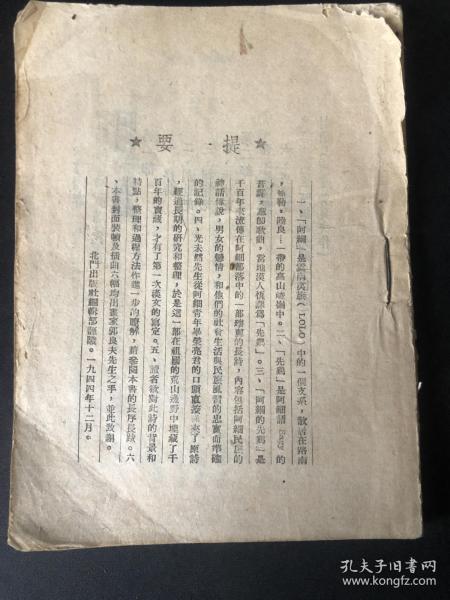 ★ 提要 ★
一、「阿細」是雲南夷族(LOLO)中的一個支系,散居在路南
,彌勒,陸良……一帶的高山崎嶇中。二、「先鷄」是阿細語 的
音譯,意即歌曲,當地漢人慣譯爲「先鷄」。三、「阿細的先鷄」是
千百年來流傳在阿細部落中的一部瓌麗的長詩,內容包括阿細民族的
神話傳說,男女的戀情,和他們的社會生活與民族風習的忠實而準確
的記錄。四、光未然先生從阿細青年畢榮亮君的口頭直接 來了原詩
,經過長期的研究和整理,於是這一部在祖國的荒山邊野中埋藏了千
百年的寶藏,才有了第一次漢文的寫定。五、讀者欲對此詩的背景和
特點,整理和過程方法作進一步的瞭解,請參閱本書的長序長跋。六
、本書封面裝幀及插曲六幅均出畫家郭良夫先生之手,並此致謝。
北門出版社編輯部謹識。一九四四年十二月。
孔夫子旧书网
www.kongfz.com